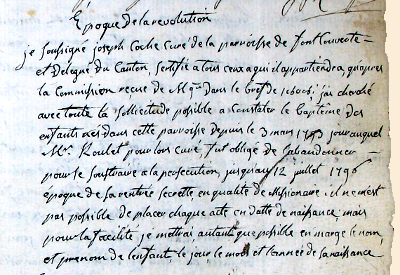 Epoque de la revolution
je soussigne joseph Coche curé de la parroisse de Font Couverte
et Delegué du Canton, sertifie a tous ceux a qui il appartiendra, qu'apres
la Commission recue de Mgr dans le bref de j'ai cherché
avec toute la sollicitude posible a Constater le Baptême des
enfants nés dans cette parroisse depuis le 3 mars 1793 jour auquel
Mr. Roulet pour lors curé fut obligé de l'abandonner
pour se soustraire a la persecution, jusqu'au 12 juillet 1796
epoque de sa rentrée secrette en qualité de Missionaire. il ne m'est
pas possible de placer chaque acte en datte de naissance; mais
pour la facilité je mettrai autant que possible en marge le nom
et prenom de l'enfant le jour le mois et l'année de sa naissance.